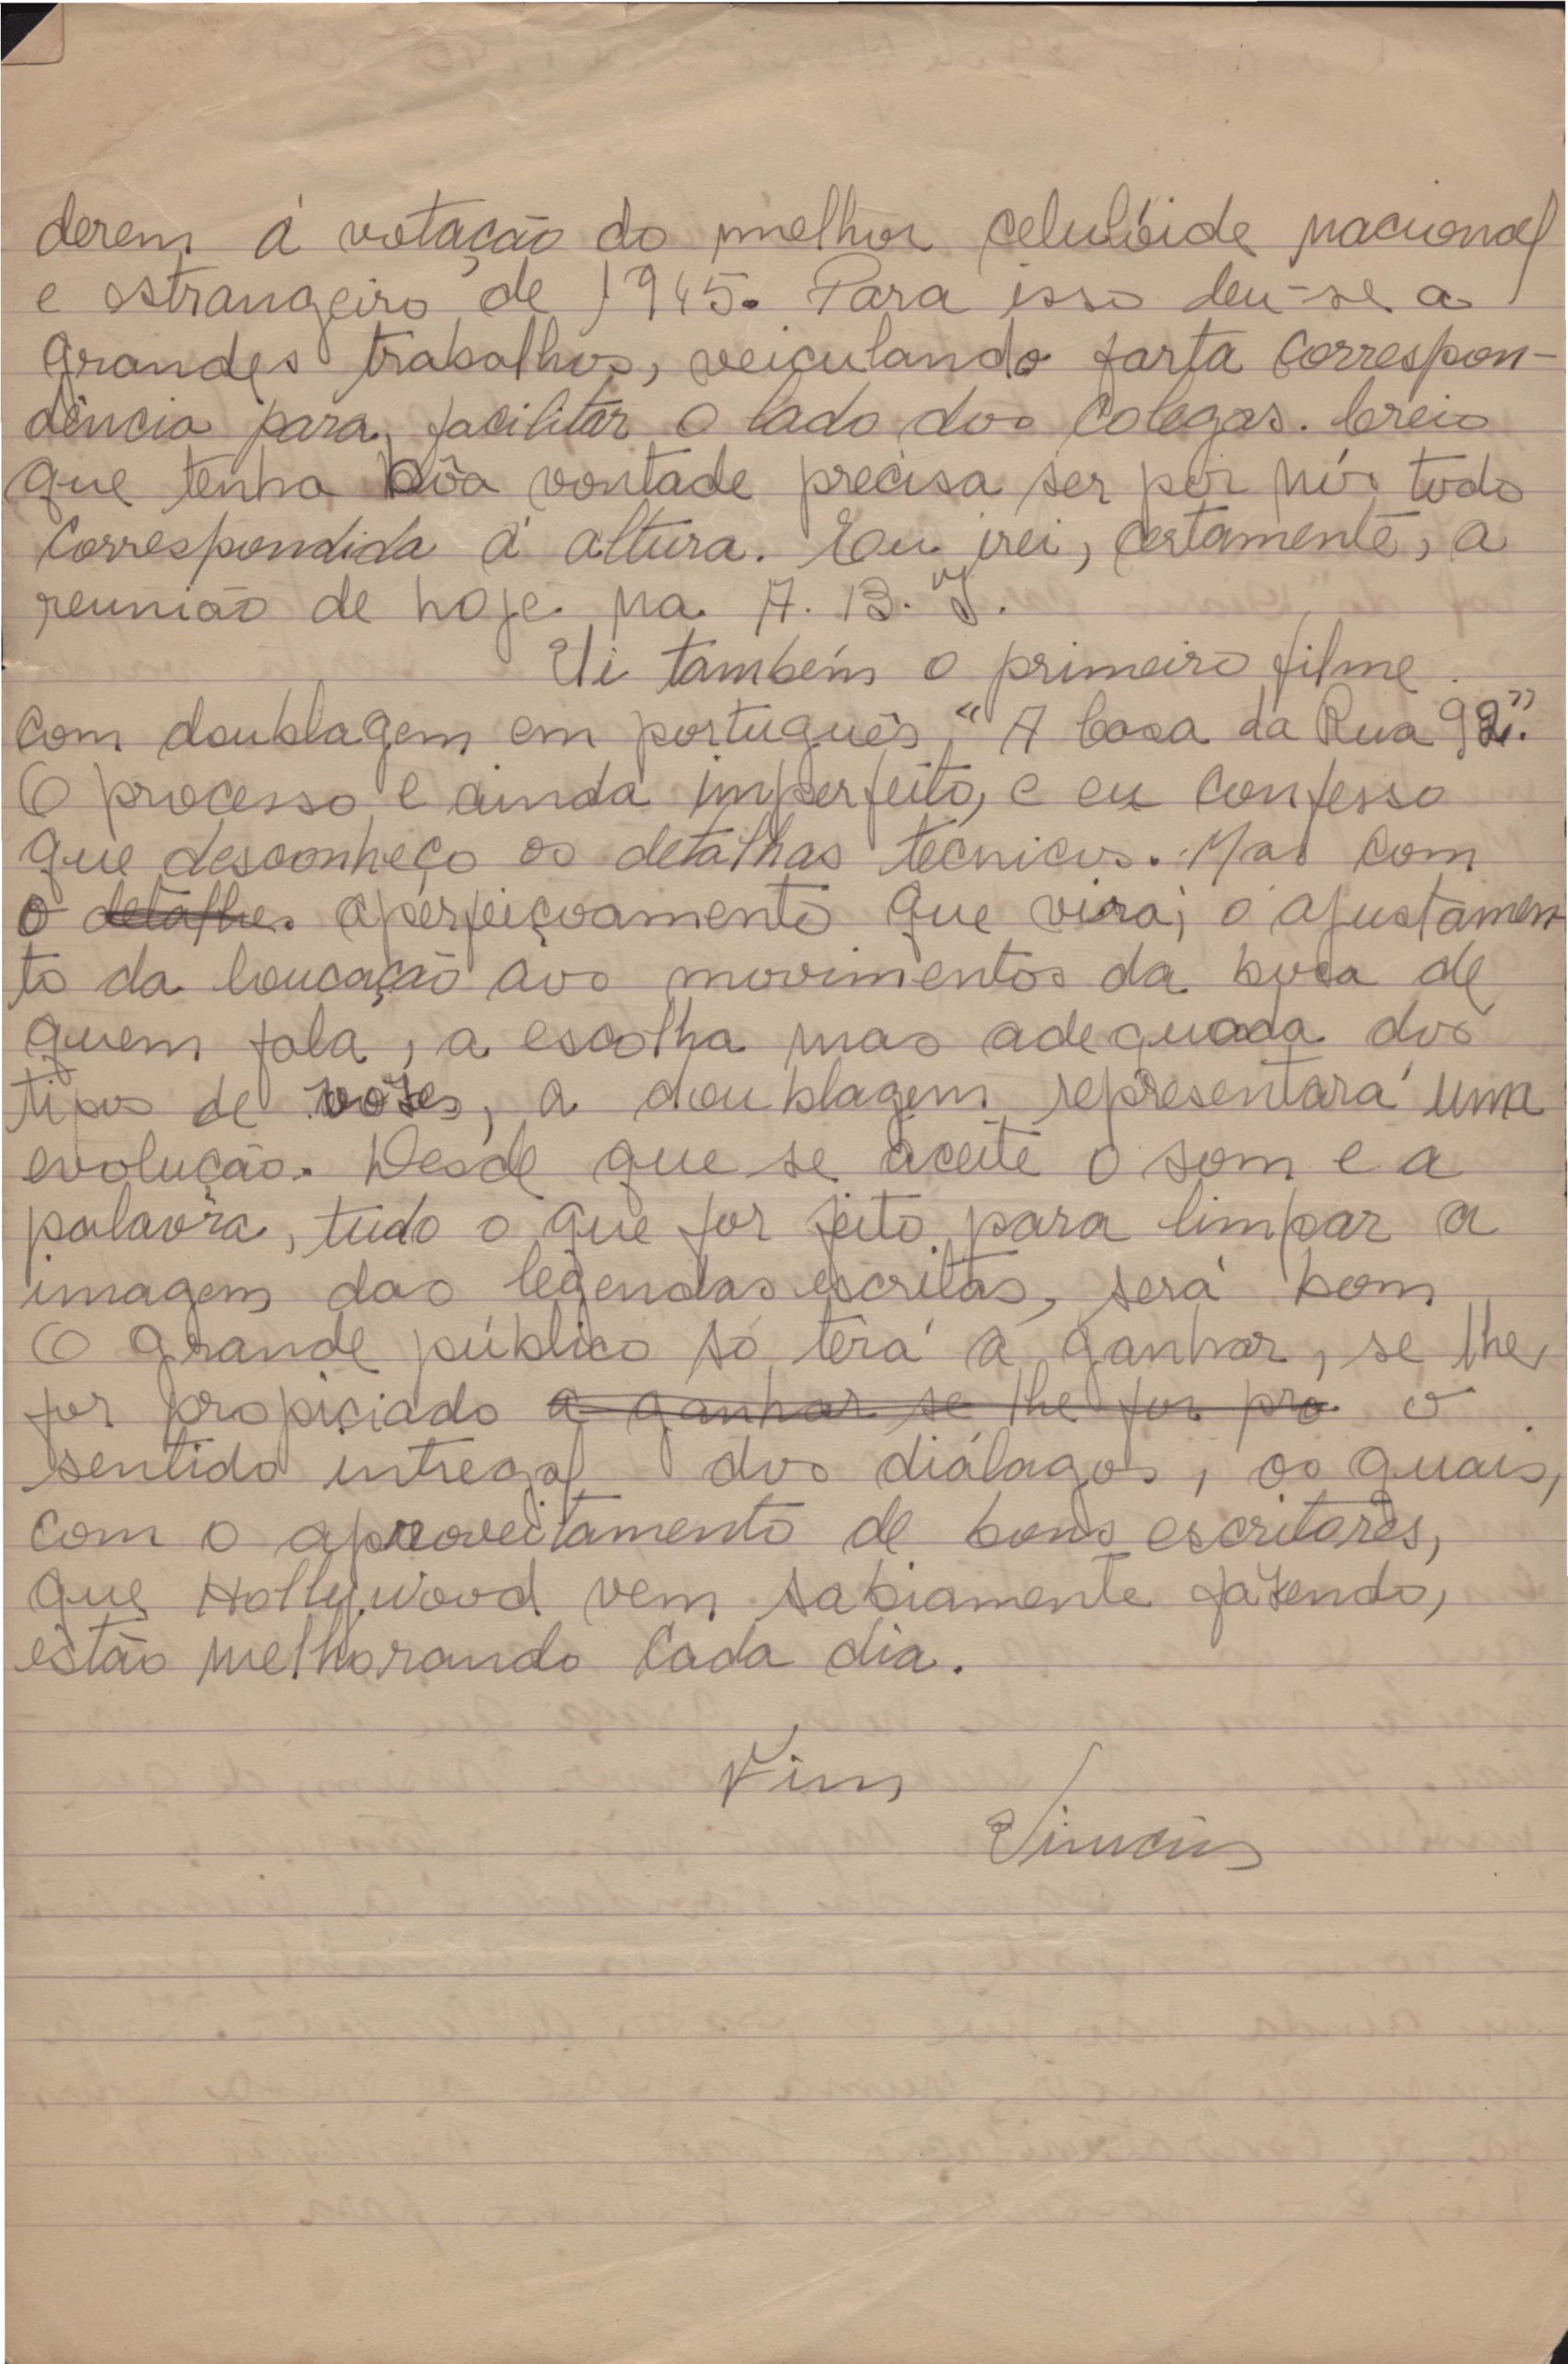 derem á votação do melhor celulóide nacional
e estrangeiro de 1945. Para isso deu-se a
grandes trabalhos, veiculando farta correspon-
dência para facilitar o lado dos colegas. Creio
que tenha bôa vontade precisa ser por nós todo
correspondida á altura. Eu irei, certamente, a
reunião de hoje na A. B. I.
Vi também o primeiro filme
com doublagem em português, "A Casa da Rua 92".
O processo é ainda imperfeito, e eu confesso
que desconheço os detalhas técnicos. Mas com
o detalhe. aperfeiçoamento que virá; o ajustamen
to da loucação aos movimentos da boca de
quem fala, a escolha mas adequada dos
tipos de vozes, a doublagem representará uma
evolução. Desde que se aceite o som e a
palavra, tudo o que for feito para limpar a
imagem das legendas escritas, será bom
O grande público só terá a ganhar, se lhe
for propiciado a ganhar se lhe for pro o
sentido intregal dos diálagos, os quais,
com o aproveitamento de bons escritores,
que Hollywood vem sabiamente fazendo,
estão melhorando cada dia.
Fim
Vinicius